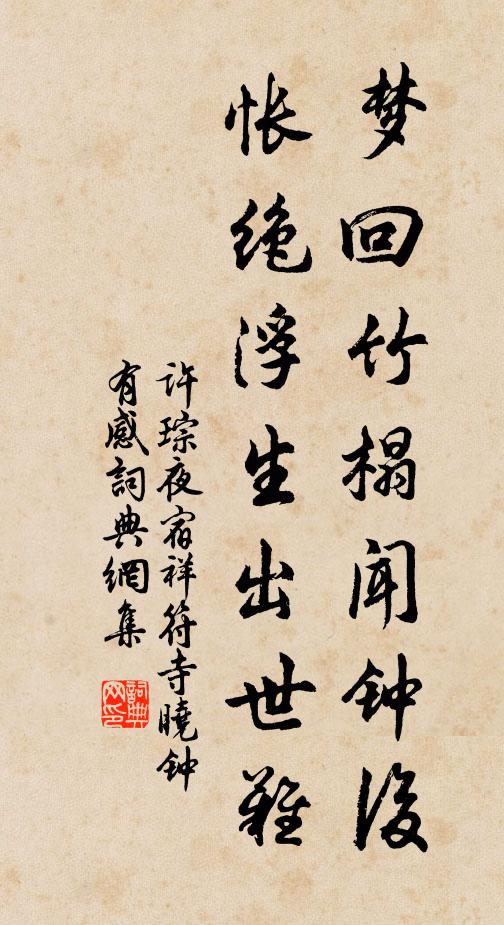 梦回竹榻闻钟后
怅绝浮生出世难
许琮夜宿祥符寺晓钟
有感词典網集
詞典
网印